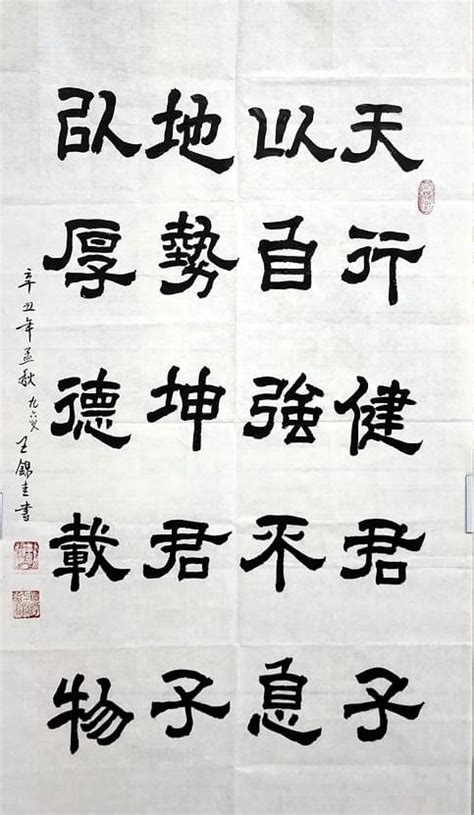 天行健君子
以自強不息
地勢坤君子
以厚德載物
辛丑年孟秋九六叟王錦圭書